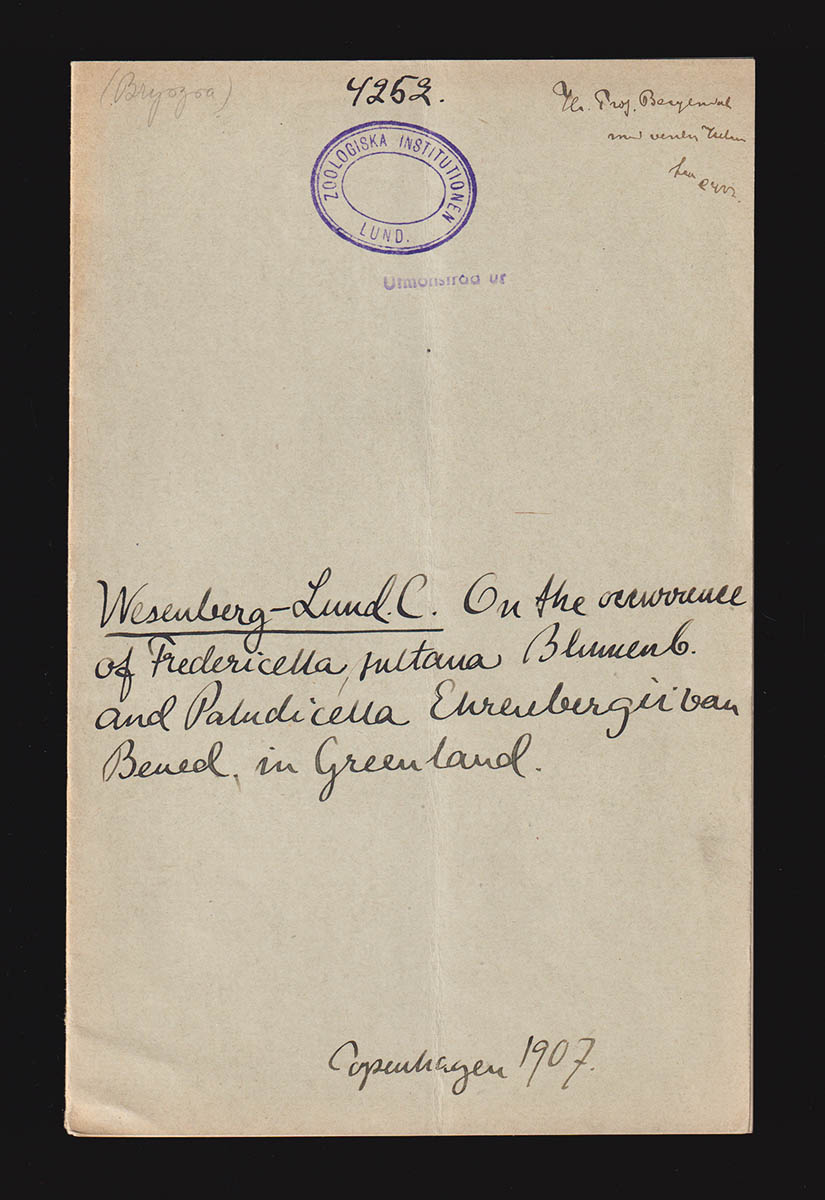 (Bryozoa)
4252.
Hr. Prof. Bergendal
med venlig Hilsen
fra
ZOOLOGISKA INSTITUTIONEN
LUND.
Utmönstrad ur
Wesenberg-Lund. C. On the occurrence
of Fredericella sultana Blumenb.
and Paludicella Ehrenbergii van
Bened. in Greenland.
Copenhagen 1907.